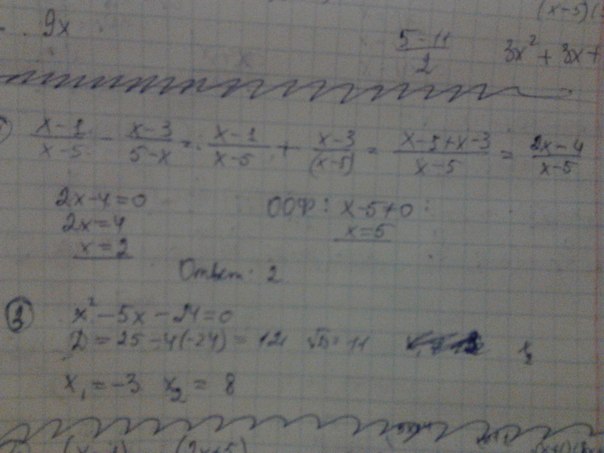 9x
(x-5)(
5-11/2 3x²+3x+
x-1/x-5 - x-3/5-x = x-1/x-5 + x-3/(x-5) = x-1+x-3/x-5 = 2x-4/x-5
2x-4=0 ООФ: x-5≠0
2x=4 x=5
x=2
Ответ: 2
3 x²-5x-24=0
D=25-4(-24)=121 √D=11
x₁=-3 x₂=8